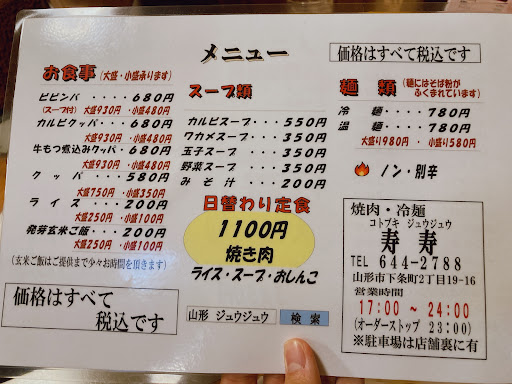 メニュー
価格はすべて税込です
お食事 (大盛・小盛承ります)
ビビンバ・・・・680円
(スープ付) 大盛930円・小盛480円
カルビクッパ・・・・680円
大盛930円・小盛480円
牛もつ煮込みクッパ・680円
大盛930円・小盛480円
クッパ・・・・・580円
大盛750円・小盛350円
ライス・・・・・200円
大盛250円・小盛100円
発芽玄米ご飯・・・200円
大盛250円・小盛100円
(玄米ご飯はご提供まで少々お時間を頂きます)
価格はすべて
税込です
スープ類
カルビスープ・・・・550円
ワカメスープ・・・・350円
玉子スープ・・・・・350円
野菜スープ・・・・・350円
みそ汁・・・・・・・200円
日替わり定食
1100円
焼き肉
ライス・スープ・おしんこ
山形 ジュウジュウ 検索
麺類 (麺にはそば粉がふくまれています)
冷麺・・・・・780円
温麺・・・・・780円
大盛り980円・小盛り580円
ノン・別辛
焼肉・冷麺
コトブキ ジュウジュウ
寿寿
TEL 644-2788
山形市下条町2丁目19-16
営業時間
17:00 ~ 24:00
(オーダーストップ 23:00)
※駐車場は店舗裏に有